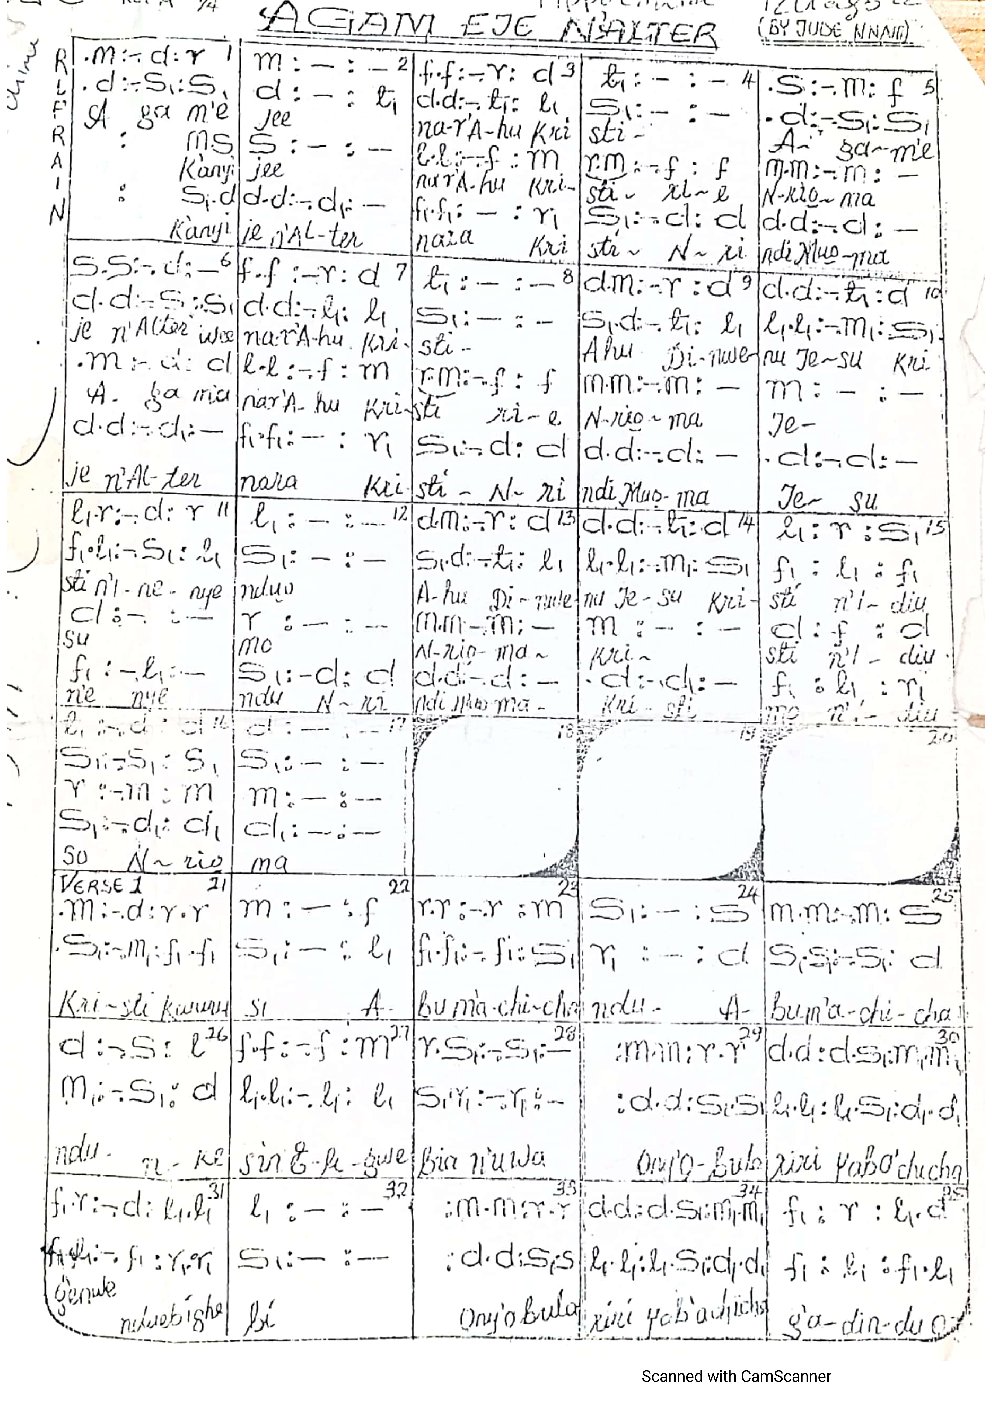 AGAM EJE N'ALTER
(BY JUDE NNAM)
REFRAIN
.m:-.d:r 1
.d:-.s₁:s₁
A ga m'e
: m.s
Kanyi
: s₁.d
Kanyi
m:-:- 2
d:-:t₁
jee
s:-:-
jee
d.d:-.d₁:-
je n'Al-ter
f.f:-.r:d 3
d.d:-.t₁:l₁
na-r'A-hu Kri
l.l:-.f:m
nar'A-hu Kri-
f₁.f₁:-:r₁
nara Kri
t₁:-:- 4
s₁:-:-
sti-
r.m:-.f:f
sti- ri-e
s₁:-.d:d
sti- N-ri
.s:-.m:f 5
.d:-.s₁:s₁
A- ga-m'e
m.m:-.m:-
N-rio-ma
d.d:-.d:-
ndi Muo-ma
s.s:-.d:- 6
d.d:-.s₁:s₁
je n'Alter wee
.m:-.d:d
A- ga ma
d.d:-.d₁:-
je n'Al-ter
f.f:-.r:d 7
d.d:-.l₁:l₁
na-r'A-hu Kri-
l.l:-.f:m
nar'A-hu Kri-
f₁.f₁:-:r₁
nara Kri
t₁:-:- 8
s₁:-:-
sti-
r.m:-.f:f
sti ri-e
s₁:-.d:d
sti- N-ri
d.m:-.r:d 9
s₁.d:-.t₁:l₁
Ahu Di-nwe-
m.m:-.m:-
N-rio-ma
d.d:-.d:-
ndi Muo-ma
d.d:-.t₁:d 10
l₁.l₁:-.m₁:s₁
nu Je-su Kri
m:-:-
Je-
.d:-.d:-
Je- su
l₁.r:-.d:r 11
f₁.l₁:-.s₁:l₁
sti n'i-ne-nye
d:-:-
su
f₁:-.l₁:-
n'e nye
l₁:-:- 12
s₁:-:-
nduo
r:-:-
mo
s₁:-d:d
ndu N-ri
d.m:-.r:d 13
s₁.d:-.t₁:l₁
A-hu Di-nwe
m.m-.m:-
N-rio-ma-
d.d:-.d:-
ndi Muo ma-
d.d:-.t₁:d 14
l₁.l₁:-.m₁:s₁
nu Je-su Kri-
m:-:-
Kri-
.d:-.d₁:-
Kri-sti
l₁:r:s₁ 15
f₁:l₁:f₁
sti n'i-diu
d:f:d
sti n'i-diu
f₁:l₁:r₁
mo n'i-diu
l₁:-.d:d 16
s₁:-.s₁:s₁
r:-.m:m
s₁:-.d₁:d₁
so N-rio
d:-:- 17
s₁:-:-
m:-:-
d₁:-:-
ma
18
19
20
VERSE 1 21
.m:-.d:r.r
.s₁:-.m₁:f₁.f₁
Kri-sti kwuru
m:-:f 22
s₁:-:l₁
si A-
r.r:-.r:m 23
f₁.f₁:-.f₁:s₁
bu m'a-chi-cha
s₁:-:s 24
r₁:-:d
ndu- A-
m.m:-.m:s 25
s₁.s₁:-.s₁:d
bu m'a-chi-cha
d:-.s:l 26
m₁:-.s₁:d
ndu- n-ke
f.f:-.f:m 27
l₁.l₁:-.l₁:l₁
sin E-li-gwe
r.s₁:-.s₁:- 28
s₁.r₁:-.r₁:-
bia n'uwa
:m.m:r.r 29
:d.d:s₁.s₁
Ony'O-bula
d.d:d.s₁:m₁.m₁ 30
l₁.l₁:l₁.s₁:d₁.d₁
riri yabo'chicha
f₁.r:-.d:l₁.l₁ 31
f₁.l₁:-.f₁:r₁.r₁
genwe
ndu ebighe
l₁:-:- 32
s₁:-:-
bi
:m.m:r.r 33
:d.d:s₁.s
Ony'o bula
d.d:d.s₁:m₁.m₁ 34
l₁.l₁:l₁.s₁:d₁.d₁
riri yab'achicha
f₁:r:l₁.d 35
f₁:l₁:f₁.l₁
g'a-din-du o
Scanned with CamScanner